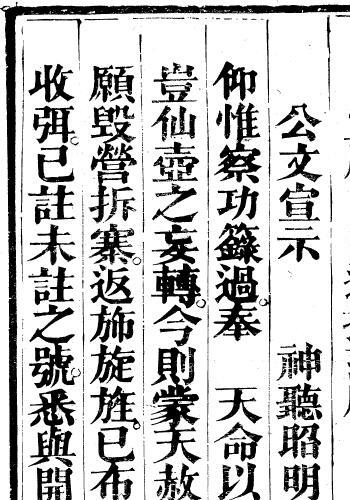 公文宣示　神聽昭明
仰惟察功籙過。奉　天命以
豈仙壺之妄轉。今則蒙大赦
願毀營拆寨。返斾旋旌。已布
收弭。已註未註之號。悉與開